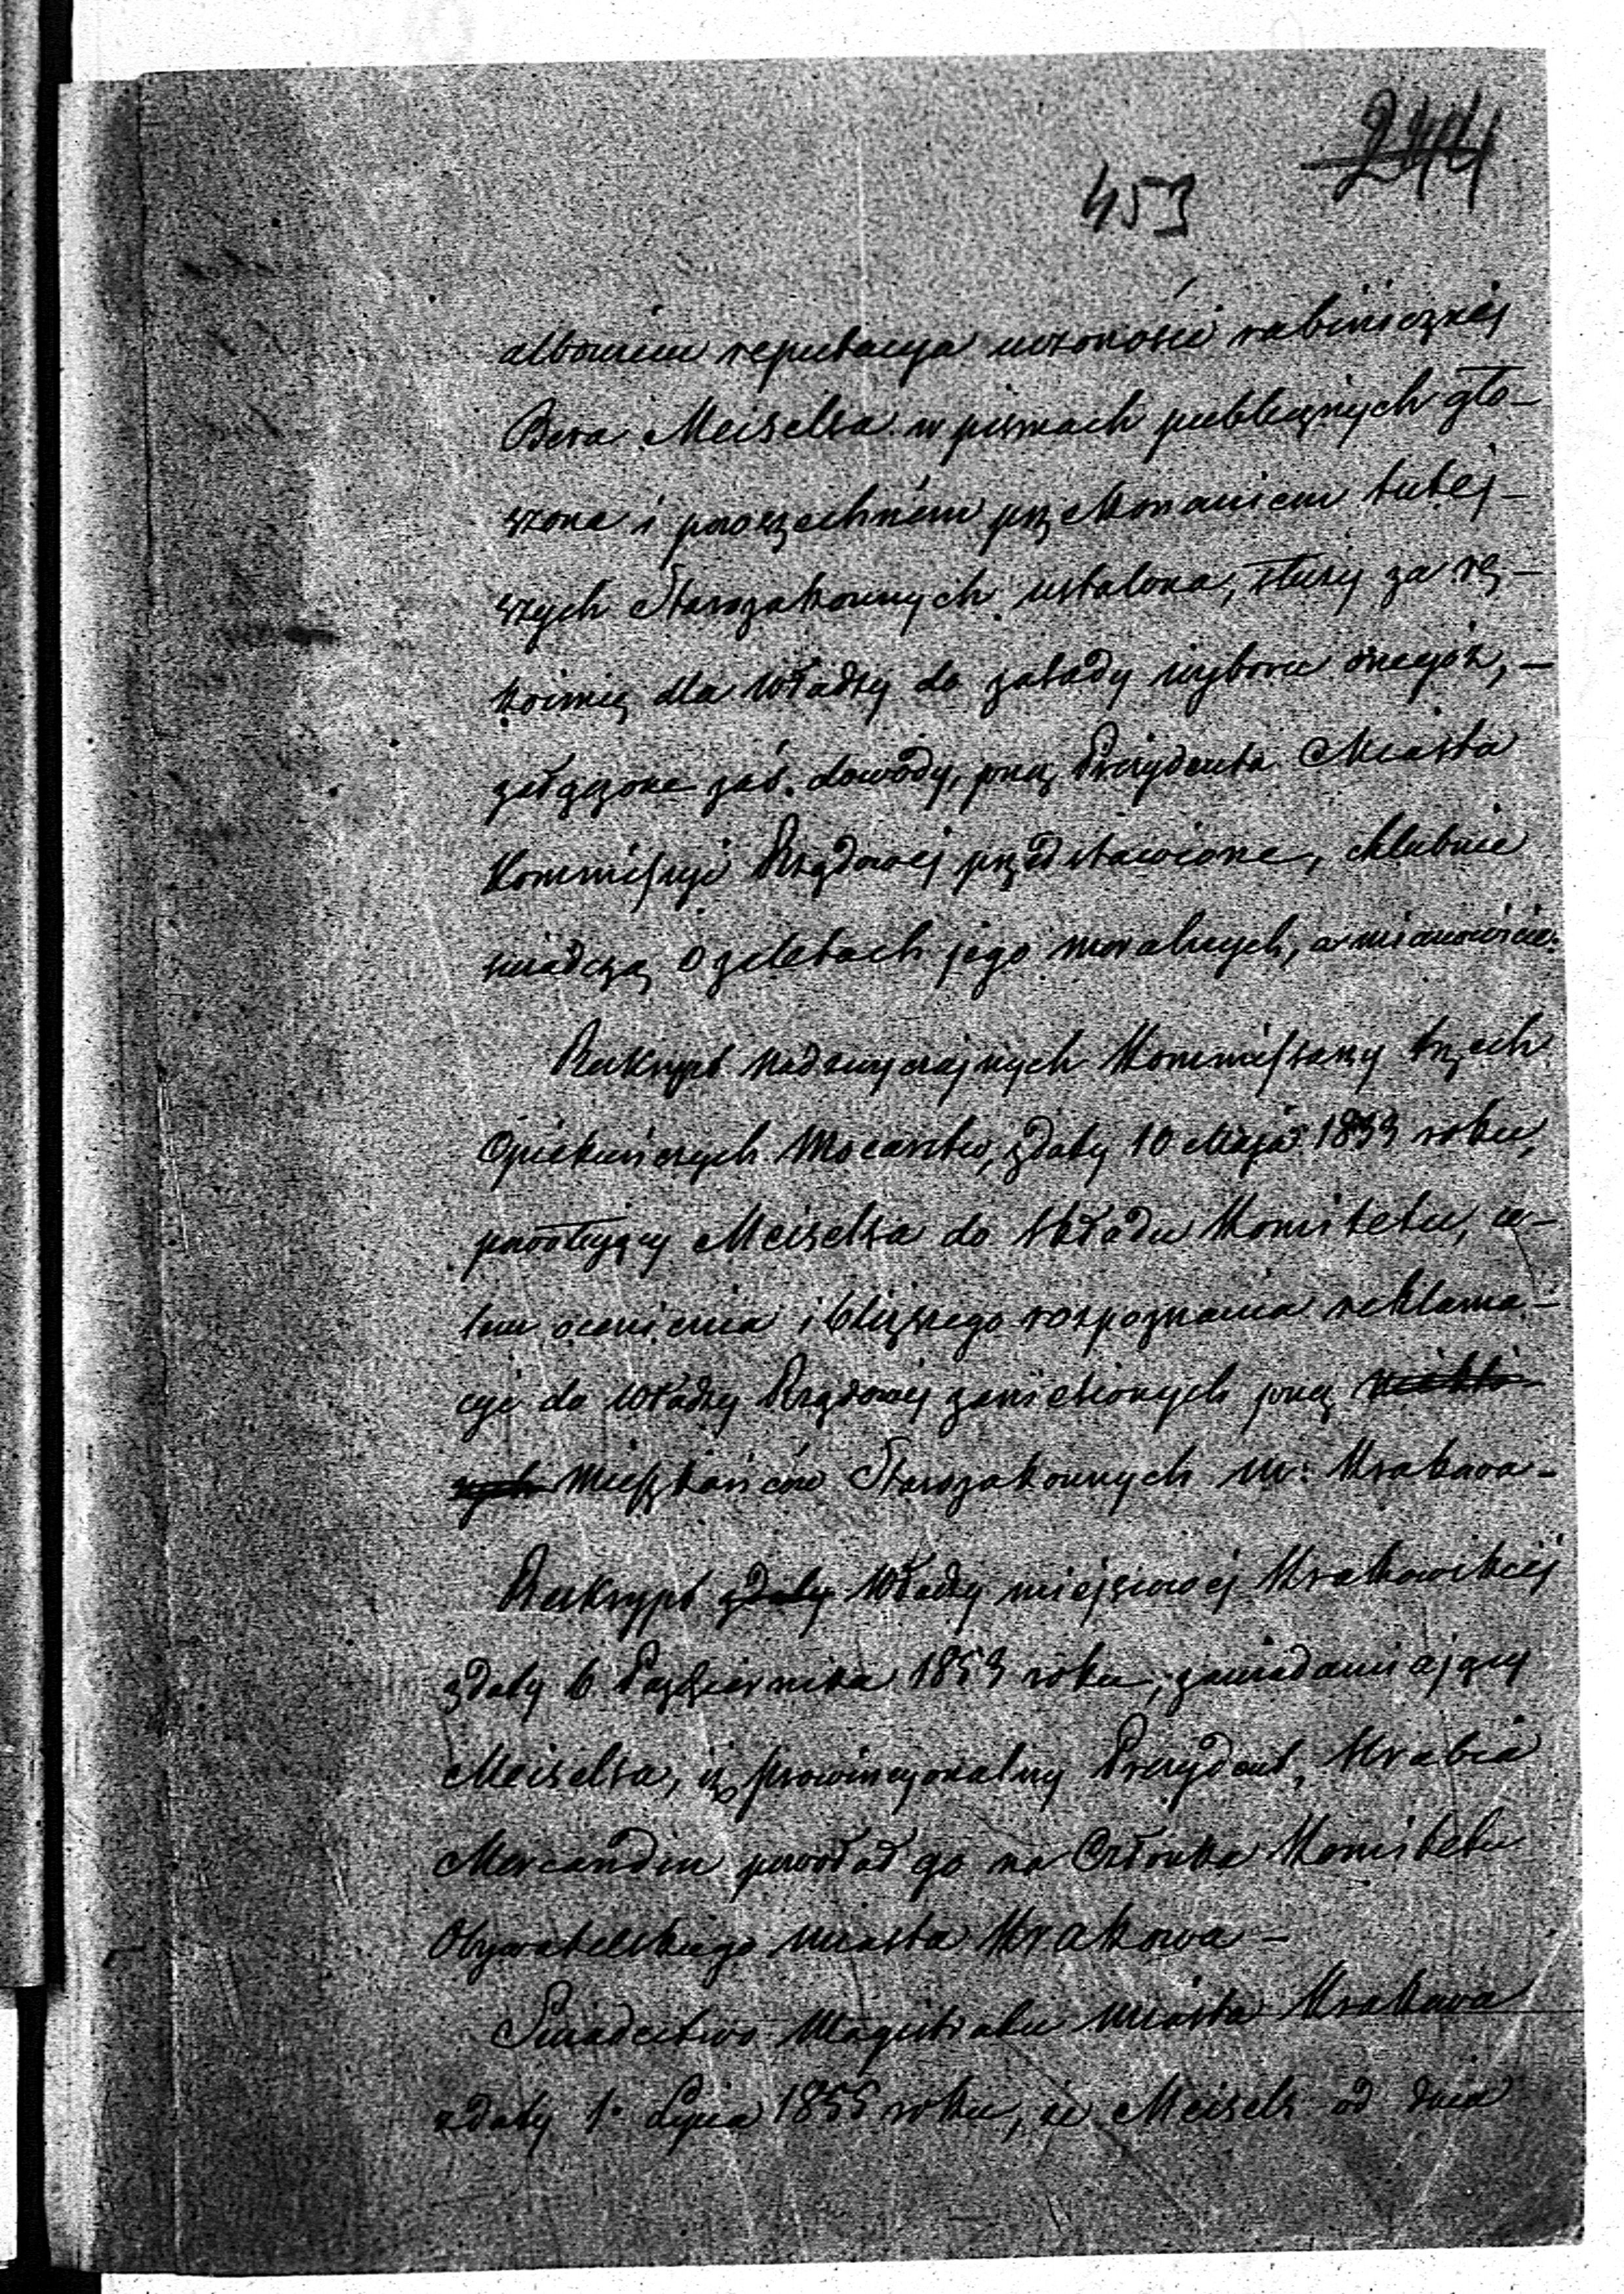 244
453
albowiem reputacya uczoności rabinicznéj
Bera Meiselsa w pismach publicznych gło-
szona i powszechném przekonaniem tutej-
szych Starozakonnych ustalona, służy za rę-
kojmię dla Władzy do zasady wyboru onegoż, -
załączone zaś dowody, przez Prezydenta Miasta
Kommissyi Rządowéj przedstawione, chlubnie
świadczą o zaletach jego moralnych, a mianowicie:
Reskrypt nadzwyczajnych Kommissarzy trzech
Opiekuńczych Mocarstw, z daty 10 Maja 1833 roku,
powołujący Meiselsa do składu Komitetu, ce-
lem ocenienia i bliższego rozpoznania reklama-
cyi do Władzy Rządowéj zaniesionych przez niektó-
rych Mieszkańców Starozakonnych m: Krakowa -
Reskrypt z daty Władzy miejscowéj Krakowskiéj
z daty 6 Października 1853 roku, zawiadamiający
Meiselsa, iż prowincyonalny Prezydent, Hrabia
Mercandin powołał go na Członka Komitetu
Obywatelskiego miasta Krakowa -
Świadectwo Magistratu miasta Krakowa
z daty 1. Lipca 1855 roku, że Meisels od dnia